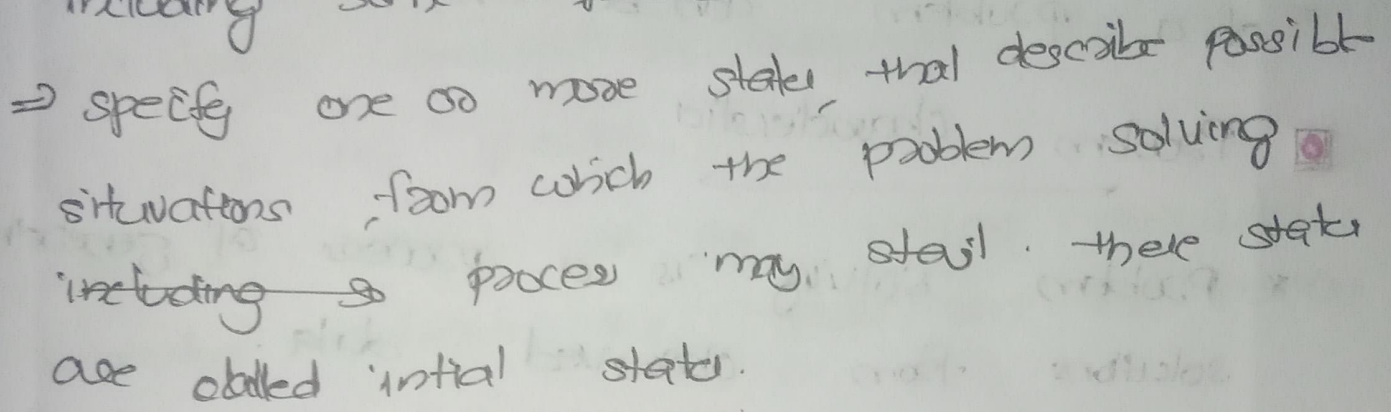 including
⇒ specify one or more states, that describe possible
situvations from which the problem solving
including so process may start. these states
are called intial states.